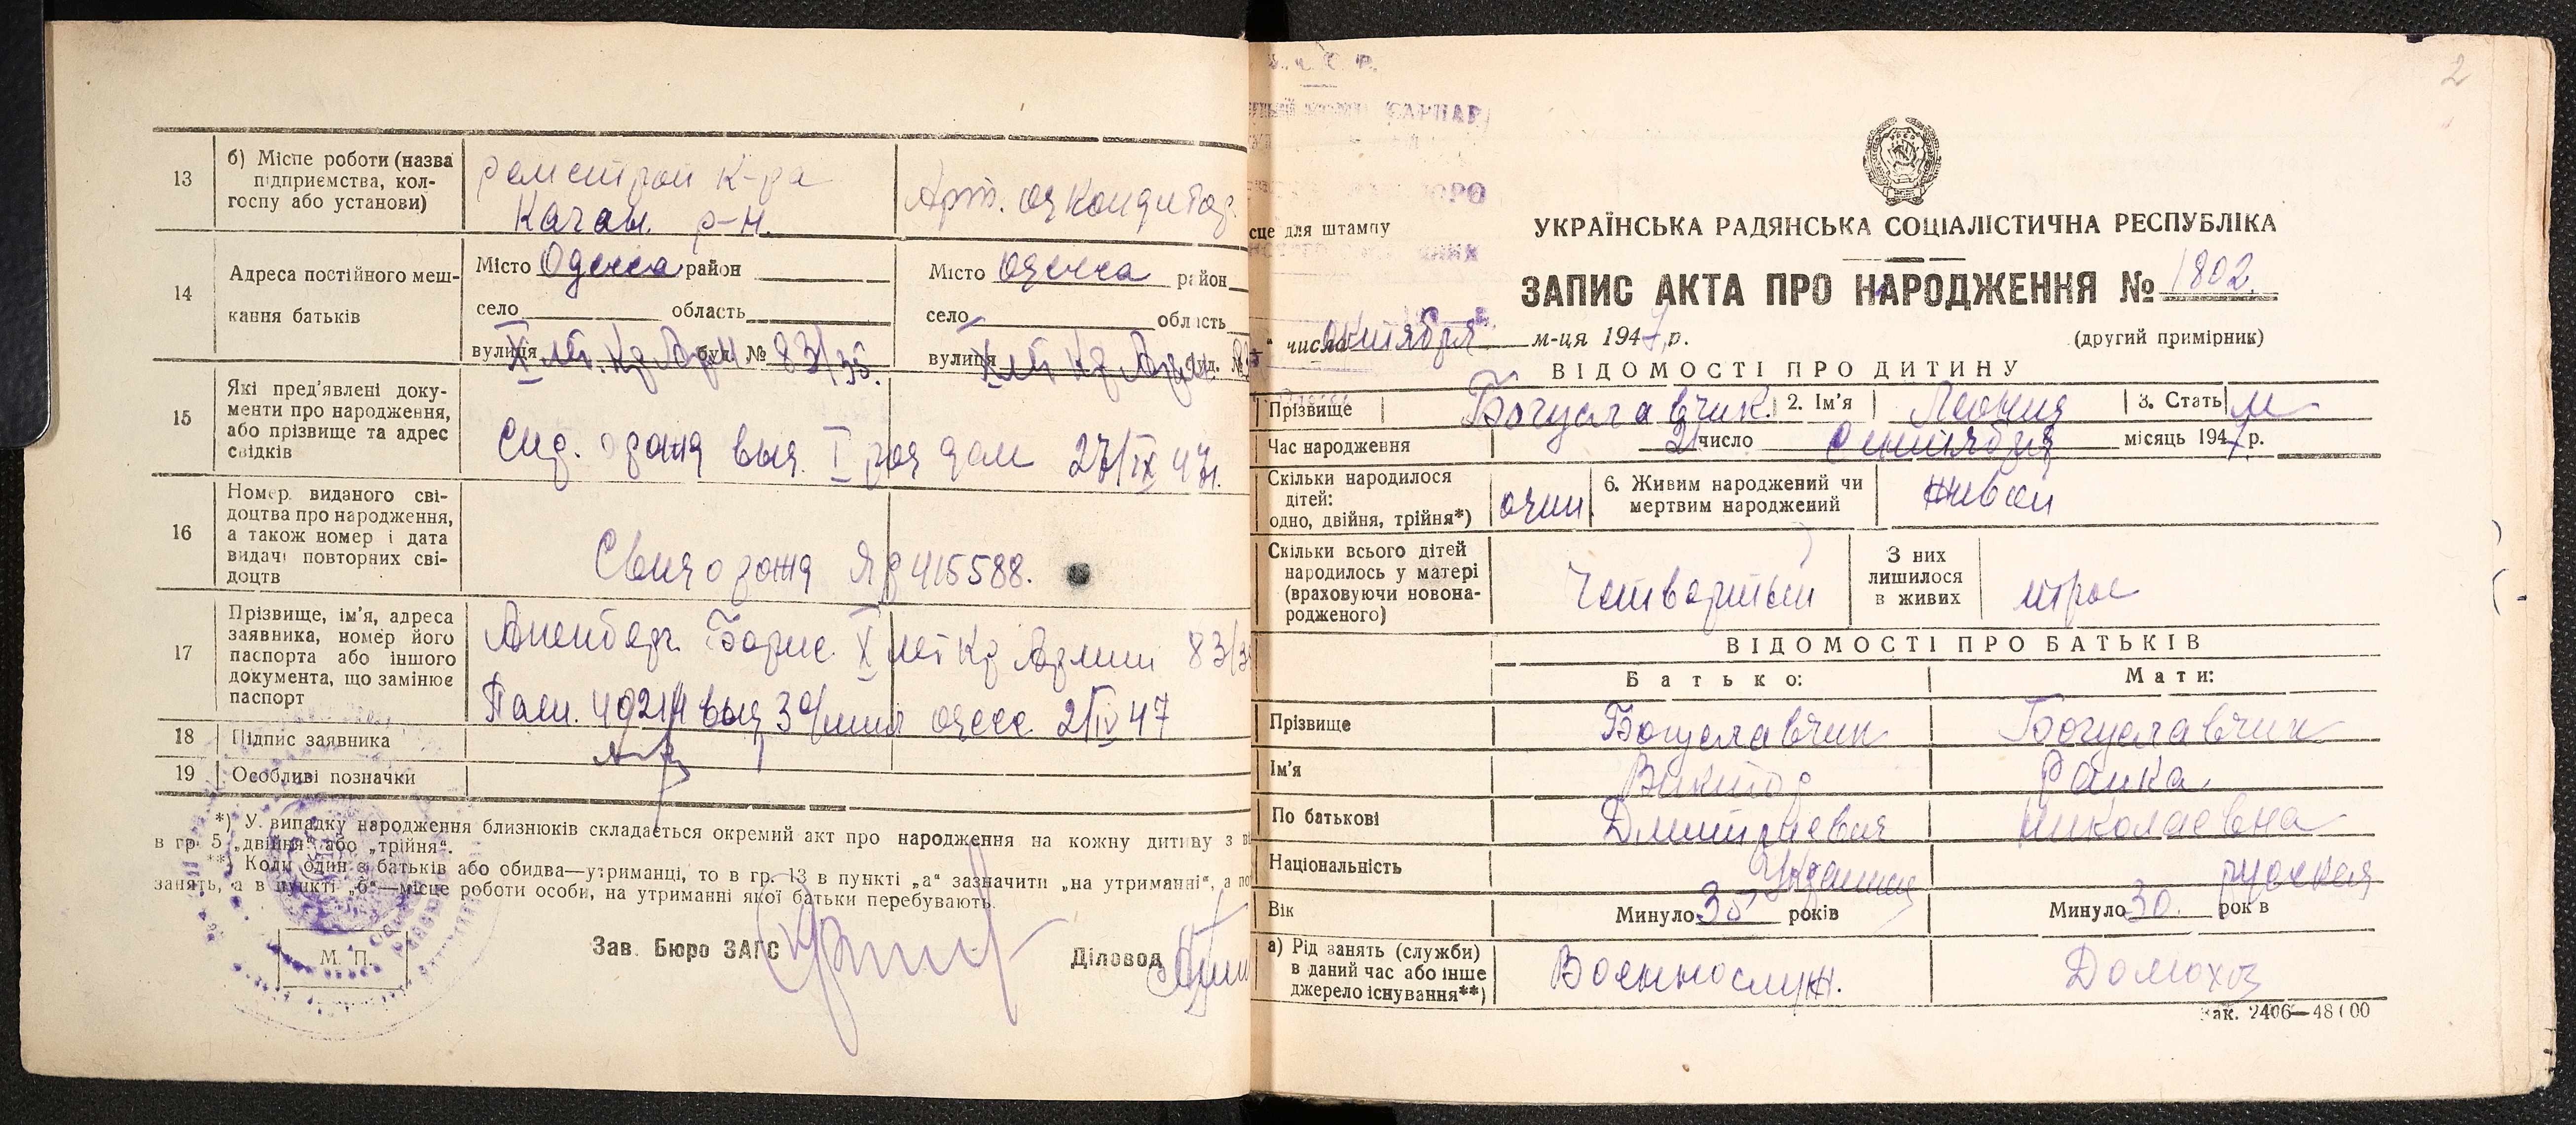 13
б) Місце роботи (назва підприємства, колгоспу або установи)
к-ра
р-н.
Арт.
14
Адреса постійного мешкання батьків
Місто Одесса район
село область
вулиця буд. № 83/35.
Місто Одесса район
село область
вулиця буд. №
15
Які пред'явлені документи про народження, або прізвище та адрес свідків
выд. I род дом 27/IX 47г.
16
Номер виданого свідоцтва про народження, а також номер і дата видачі повторних свідоцтв
415588.
17
Прізвище, ім'я, адреса заявника, номер його паспорта або іншого документа, що замінює паспорт
Борис X лет Кр Армии
выд 3 о/мил одесс 2/IV 47
18
Підпис заявника
19
Особливі позначки
*) У випадку народження близнюків складається окремий акт про народження на кожну дитину з
в гр. 5 „двійня" або „трійня".
**) Коли один з батьків або обидва—утриманці, то в гр. 13 в пункті „а" зазначити „на утриманні", а
занять, а в пункті „б"—місце роботи особи, на утриманні якої батьки перебувають.
М. П.
Зав. Бюро ЗАГС
Діловод
2
сце для штампу
УКРАЇНСЬКА РАДЯНСЬКА СОЦІАЛІСТИЧНА РЕСПУБЛІКА
ЗАПИС АКТА ПРО НАРОДЖЕННЯ № 1802
" числа октября м-ця 1947 р.
(другий примірник)
ВІДОМОСТІ ПРО ДИТИНУ
Прізвище Богуславчик 2. Ім'я Леонид 3. Стать м
Час народження 21 число сентября місяць 1947 р.
Скільки народилося дітей: одно, двійня, трійня*) один
6. Живим народжений чи мертвим народжений живой
Скільки всього дітей народилось у матері (враховуючи новонародженого) четвертый
З них лишилося в живих трое
ВІДОМОСТІ ПРО БАТЬКІВ
Батько: Мати:
Прізвище Богуславчик Богуславчик
Ім'я Виктор
По батькові Дмитриевич Николаевна
Національність Украинец русская
Вік Минуло 35 років Минуло 30. років
а) Рід занять (служби) в даний час або інше джерело існування**) Военнослуж. Домохоз
Зак. 2406—48100